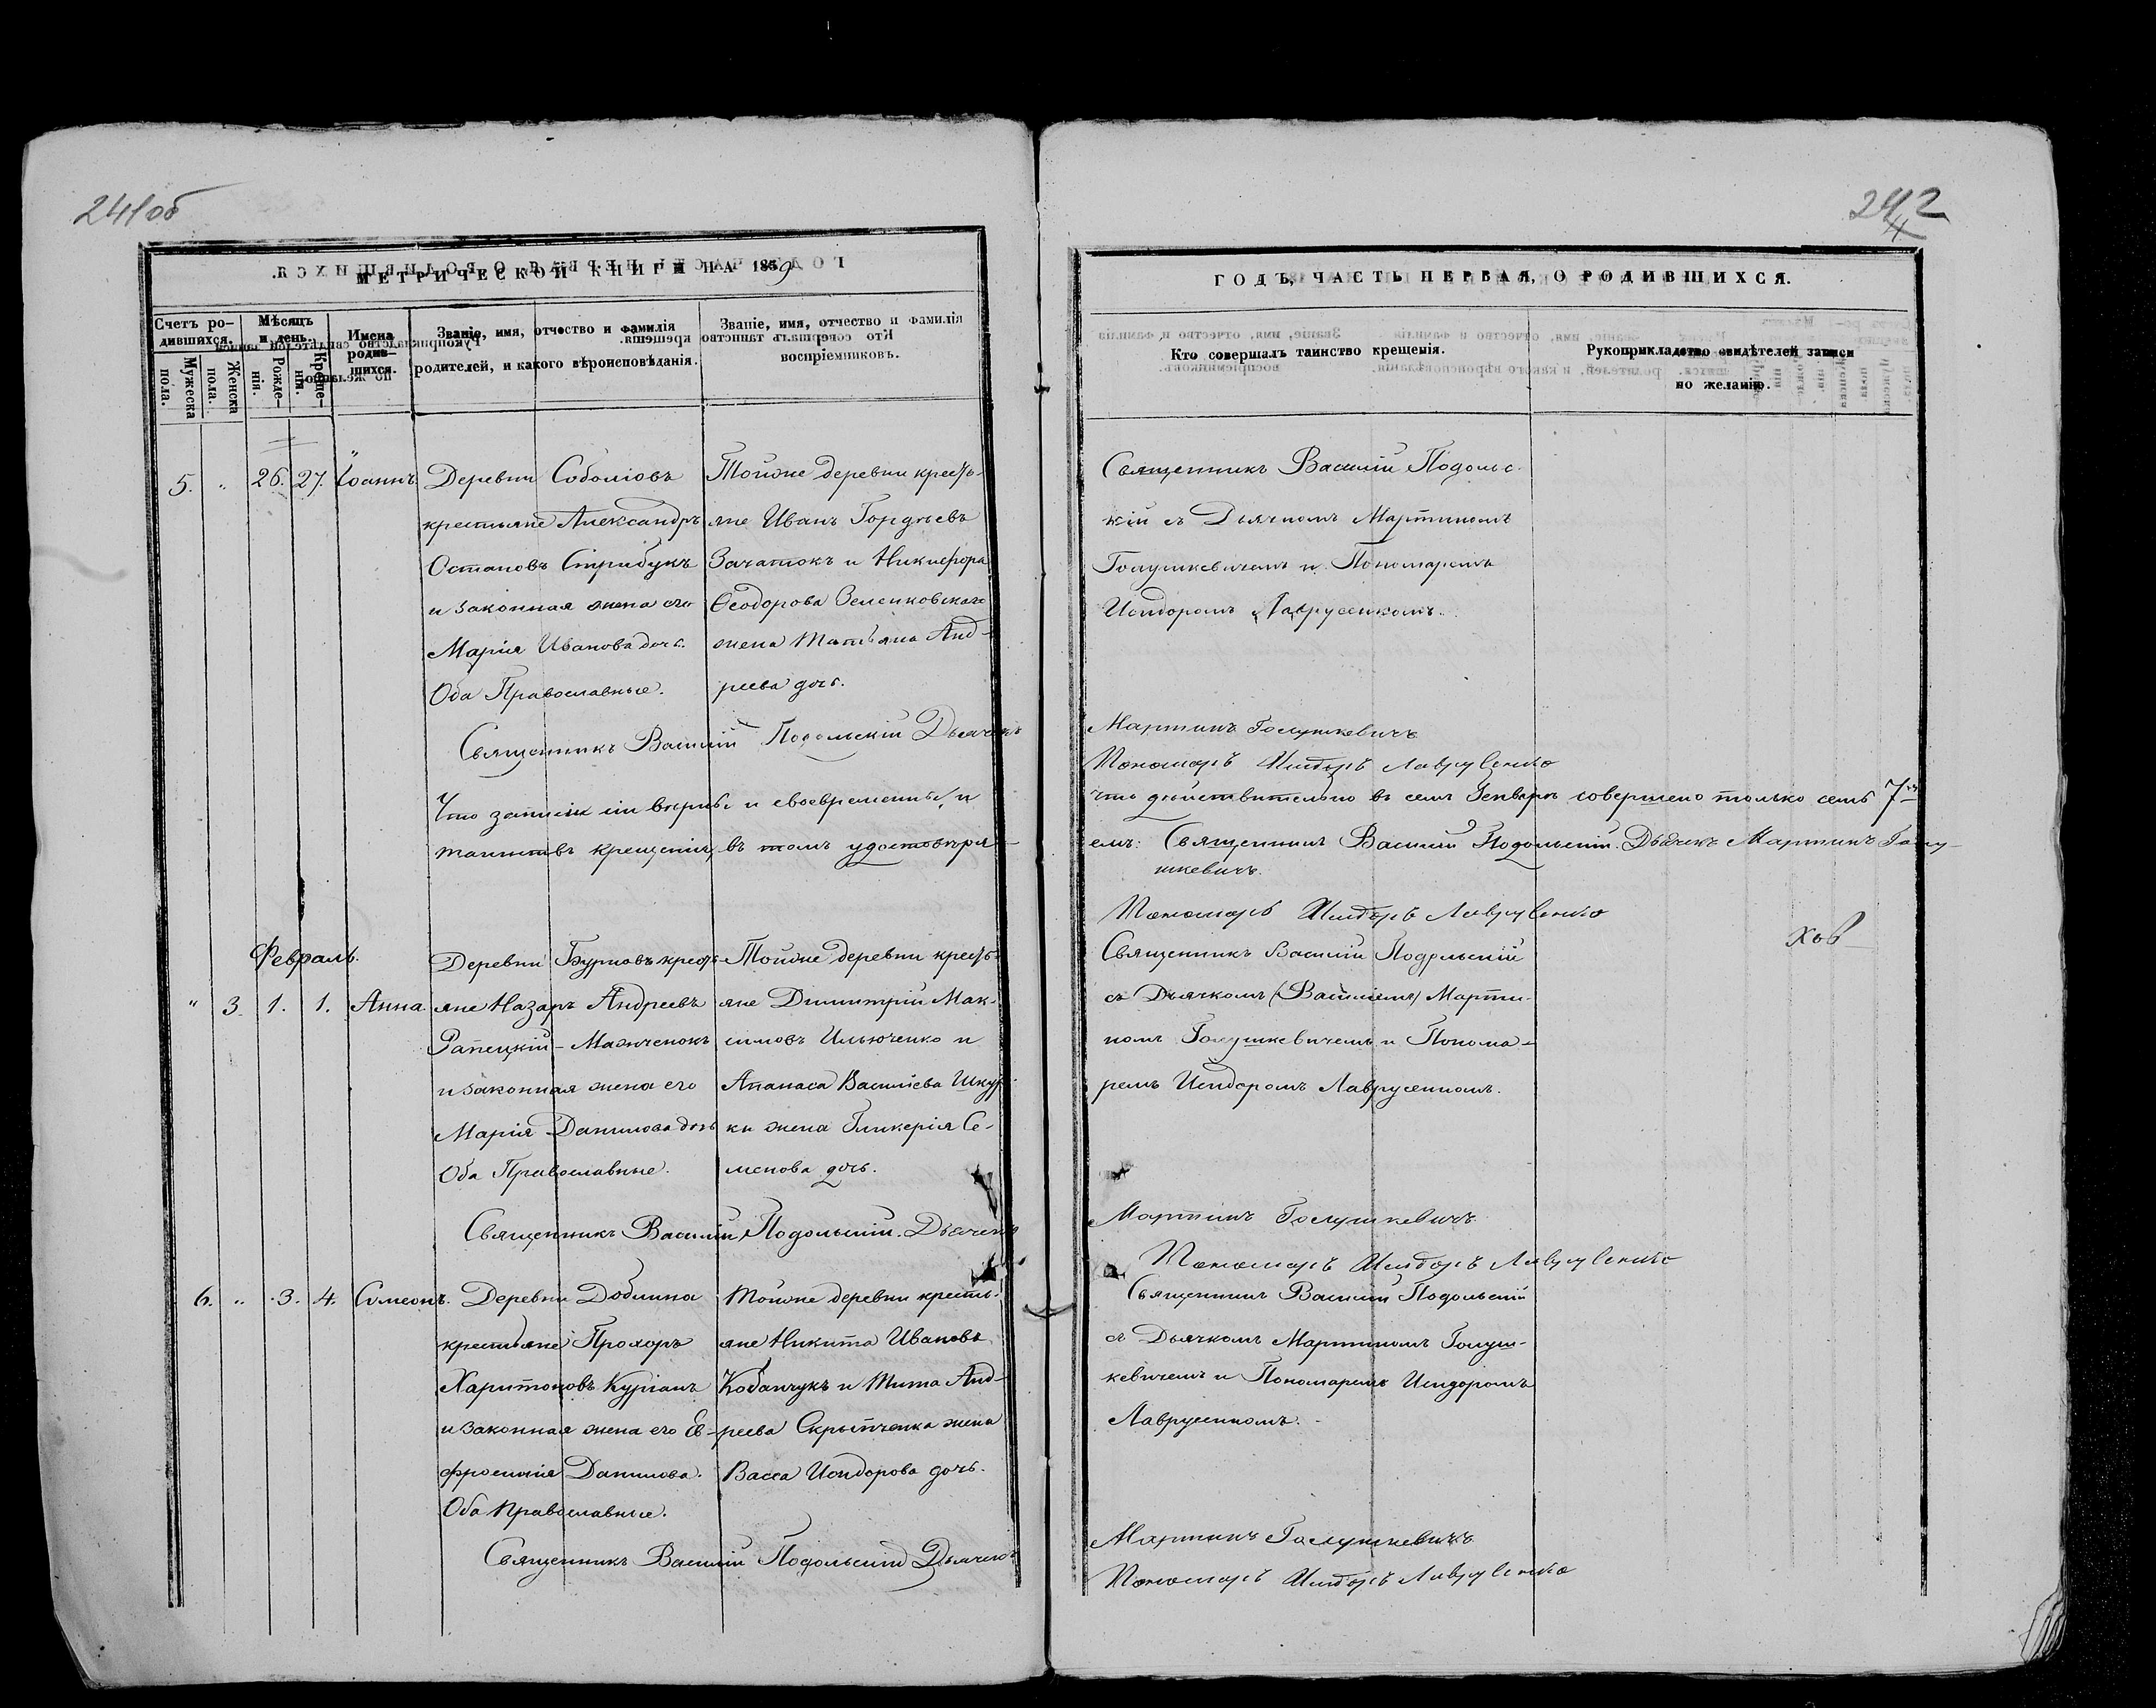 241об
МЕТРИЧЕСКОЙ КНИГИ НА 1859
Счетъ ро-
дившихся.
Мужеска пола.
Женска пола.
Мѣсяцъ
и день.
Рожде-
нія.
Креще-
нія.
Имена
родив-
шихся.
Званіе, имя, отчество и фамилія
родителей, и какого вѣроисповѣданія.
Званіе, имя, отчество и фамилія
воспріемниковъ.
5. " 26. 27. Іоаннъ
Деревни Соболіовъ
крестьяне Александръ
Остаповъ Стрибукъ
и законная жена его
Марія Иванова дочь.
Оба Православные.
Тойже деревни кресть-
яне Иванъ Гордѣевъ
Зачатокъ и Никифора
Ѳеодорова Зеленковскаго
жена Татьяна Анд-
реева дочь.
Священникъ Василій Подольскій Дьячекъ
Что записи сіи вѣрны и своевременны, и
таинствъ крещенія, въ томъ удостовѣря-
Февраль.
" 3. 1. 1. Анна
Деревни Бурковъ кресть-
яне Назаръ Андреевъ
Рапецкій-Мажченокъ
и законная жена его
Марія Данилова дочь
Оба Православные.
Тойже деревни кресть-
яне Димитрій Мак-
симовъ Ильюченко и
Апанаса Василіева Шкур-
ки жена Гликерія Се-
менова дочь.
Священникъ Василій Подольскій. Дьячекъ
6. " 3. 4. Симеонъ.
Деревни Доблина
крестьяне Прохоръ
Харитоновъ Куріанъ
и законная жена его Ев-
фросинія Данилова.
Оба православные.
Тойже деревни кресть-
яне Никита Ивановъ
Кобанчукъ и Тита Анд-
реева Скрыпченка жена
Васса Исидорова дочь.
Священникъ Василій Подольскій Дьячекъ
242
ГОДЪ, ЧАСТЬ ПЕРВАЯ, О РОДИВШИХСЯ.
Кто совершалъ таинство крещенія.
Рукоприкладство свидѣтелей записи
по желанію.
Священникъ Василій Подольс-
кій съ Дьячкомъ Мартиномъ
Голушкевичемъ и Пономаремъ
Исидоромъ Лаврусенкомъ.
Мартинъ Голушкевичъ
Пономарь Исидоръ Лаврусенко
что дѣйствительно въ семъ Генварѣ совершено только семь 7
емъ: Священникъ Василій Подольскій. Дьячекъ Мартинъ Голу-
шкевичъ.
Пономарь Исидоръ Лаврусенко
Священникъ Василій Подольскій
съ Дьячкомъ (Василіемъ) Марти-
номъ Голушкевичемъ и Понома-
ремъ Исидоромъ Лаврусенкомъ.
Мартинъ Голушкевичъ
Пономарь Исидоръ Лаврусенко
Священникъ Василій Подольскій
съ Дьячкомъ Мартиномъ Голуш-
кевичемъ и Пономаремъ Исидоромъ
Лаврусенкомъ.
Мартинъ Голушкевичъ
Пономарь Исидоръ Лаврусенко